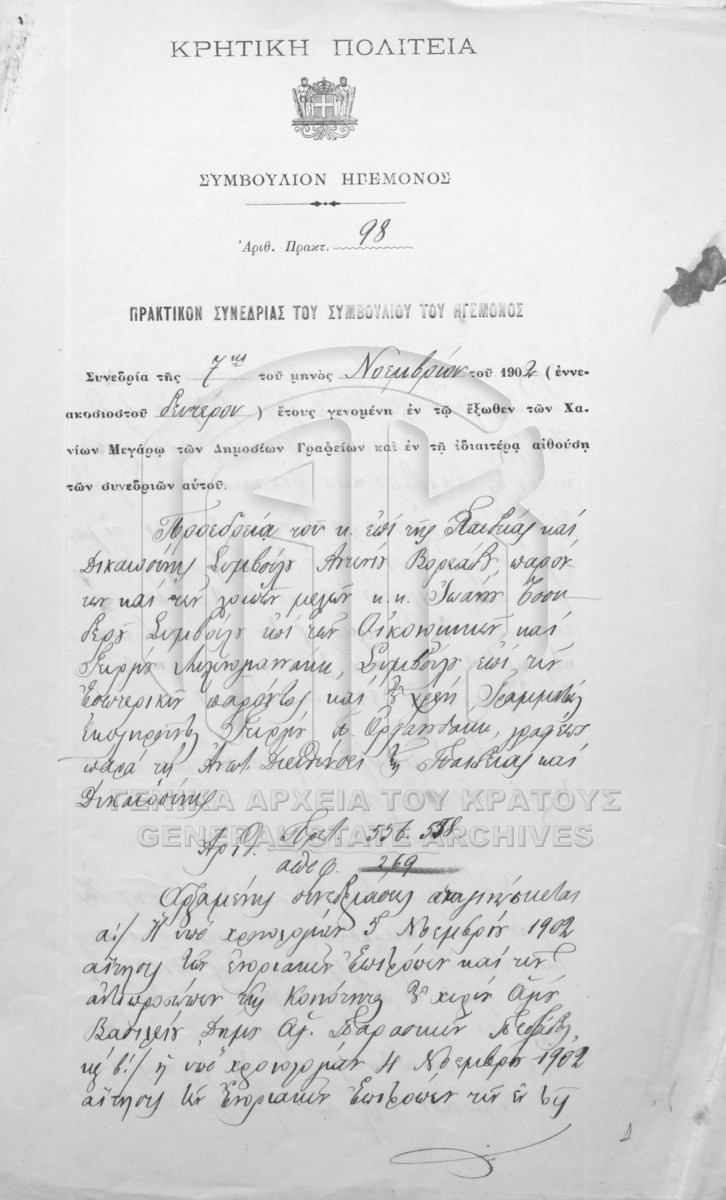 ΚΡΗΤΙΚΗ ΠΟΛΙΤΕΙΑ
ΣΥΜΒΟΥΛΙΟΝ ΗΓΕΜΟΝΟΣ
Ἀριθ. Πρακτ. 98
ΠΡΑΚΤΙΚΟΝ ΣΥΝΕΔΡΙΑΣ ΤΟΥ ΣΥΜΒΟΥΛΙΟΥ ΤΟΥ ΗΓΕΜΟΝΟΣ
Συνεδρία τῆς 7ης τοῦ μηνὸς Νοεμβρίου τοῦ 1902 (ἐννε-
ακοσιοστοῦ δευτέρου) ἔτους γενομένη ἐν τῷ ἔξωθεν τῶν Χα-
νίων Μεγάρῳ τῶν Δημοσίων Γραφείων καὶ ἐν τῇ ἰδιαιτέρᾳ αἰθούσῃ
τῶν συνεδριῶν αὐτοῦ.
Προεδρεία τοῦ κ. ἐπὶ τῆς Παιδείας καὶ
Δικαιοσύνης Συμβούλου Ἀντωνίου Βορεάδου, παρόν
των καὶ τῶν λοιπῶν μελῶν κ.κ. Ἰωάννου Τσου
δεροῦ Συμβούλου ἐπὶ τῶν Οἰκονομικῶν καὶ
Γεωργίου Μυλονογιαννάκη, Συμβούλου ἐπὶ τῶν
Ἐσωτερικῶν παρόντος καὶ χρέη Γραμματέως
ἐκπληροῦντος Γεωργίου γραφέως
παρὰ τῇ Ἀνωτ. Διευθύνσει τῆς Παιδείας καὶ
Δικαιοσύνης
ΓΕΝΙΚΑ ΑΡΧΕΙΑ ΤΟΥ ΚΡΑΤΟΥΣ
GENERAL STATE ARCHIVES
Ἀριθ. Πρωτ. 556. 558.
αποφ. 269
Ἀρξαμένης συνεδριάσεως ἀναγινώσκεται
α:/ Ἡ ὑπὸ χρονολογίαν 5 Νοεμβρίου 1902
αἴτησις τῶν ἐνοριακῶν Ἐπιτρόπων καὶ τῶν
ἀντιπροσώπων τῆς Κοινότητος χωρίου Ἁγίου
Βασιλείου Δήμου Ἁγ. Παρασκιῶν
β:/ ἡ ὑπὸ χρονολογίαν 4 Νοεμβρίου 1902
αἴτησις τῶν Ἐνοριακῶν Ἐπιτρόπων τῶν ἐν τῇ